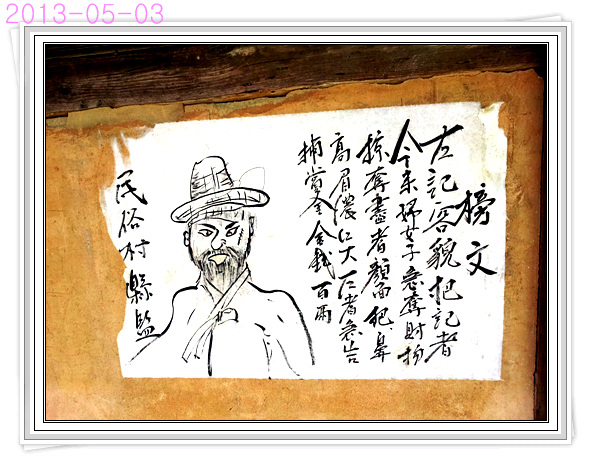 2013-05-03
榜文
左記容貌把記者
今来婦女子急奪財物
掠奪盡者顔面把鼻
高眉濃仁大仁者急告
捕賞金金錢百兩
民俗村縣監